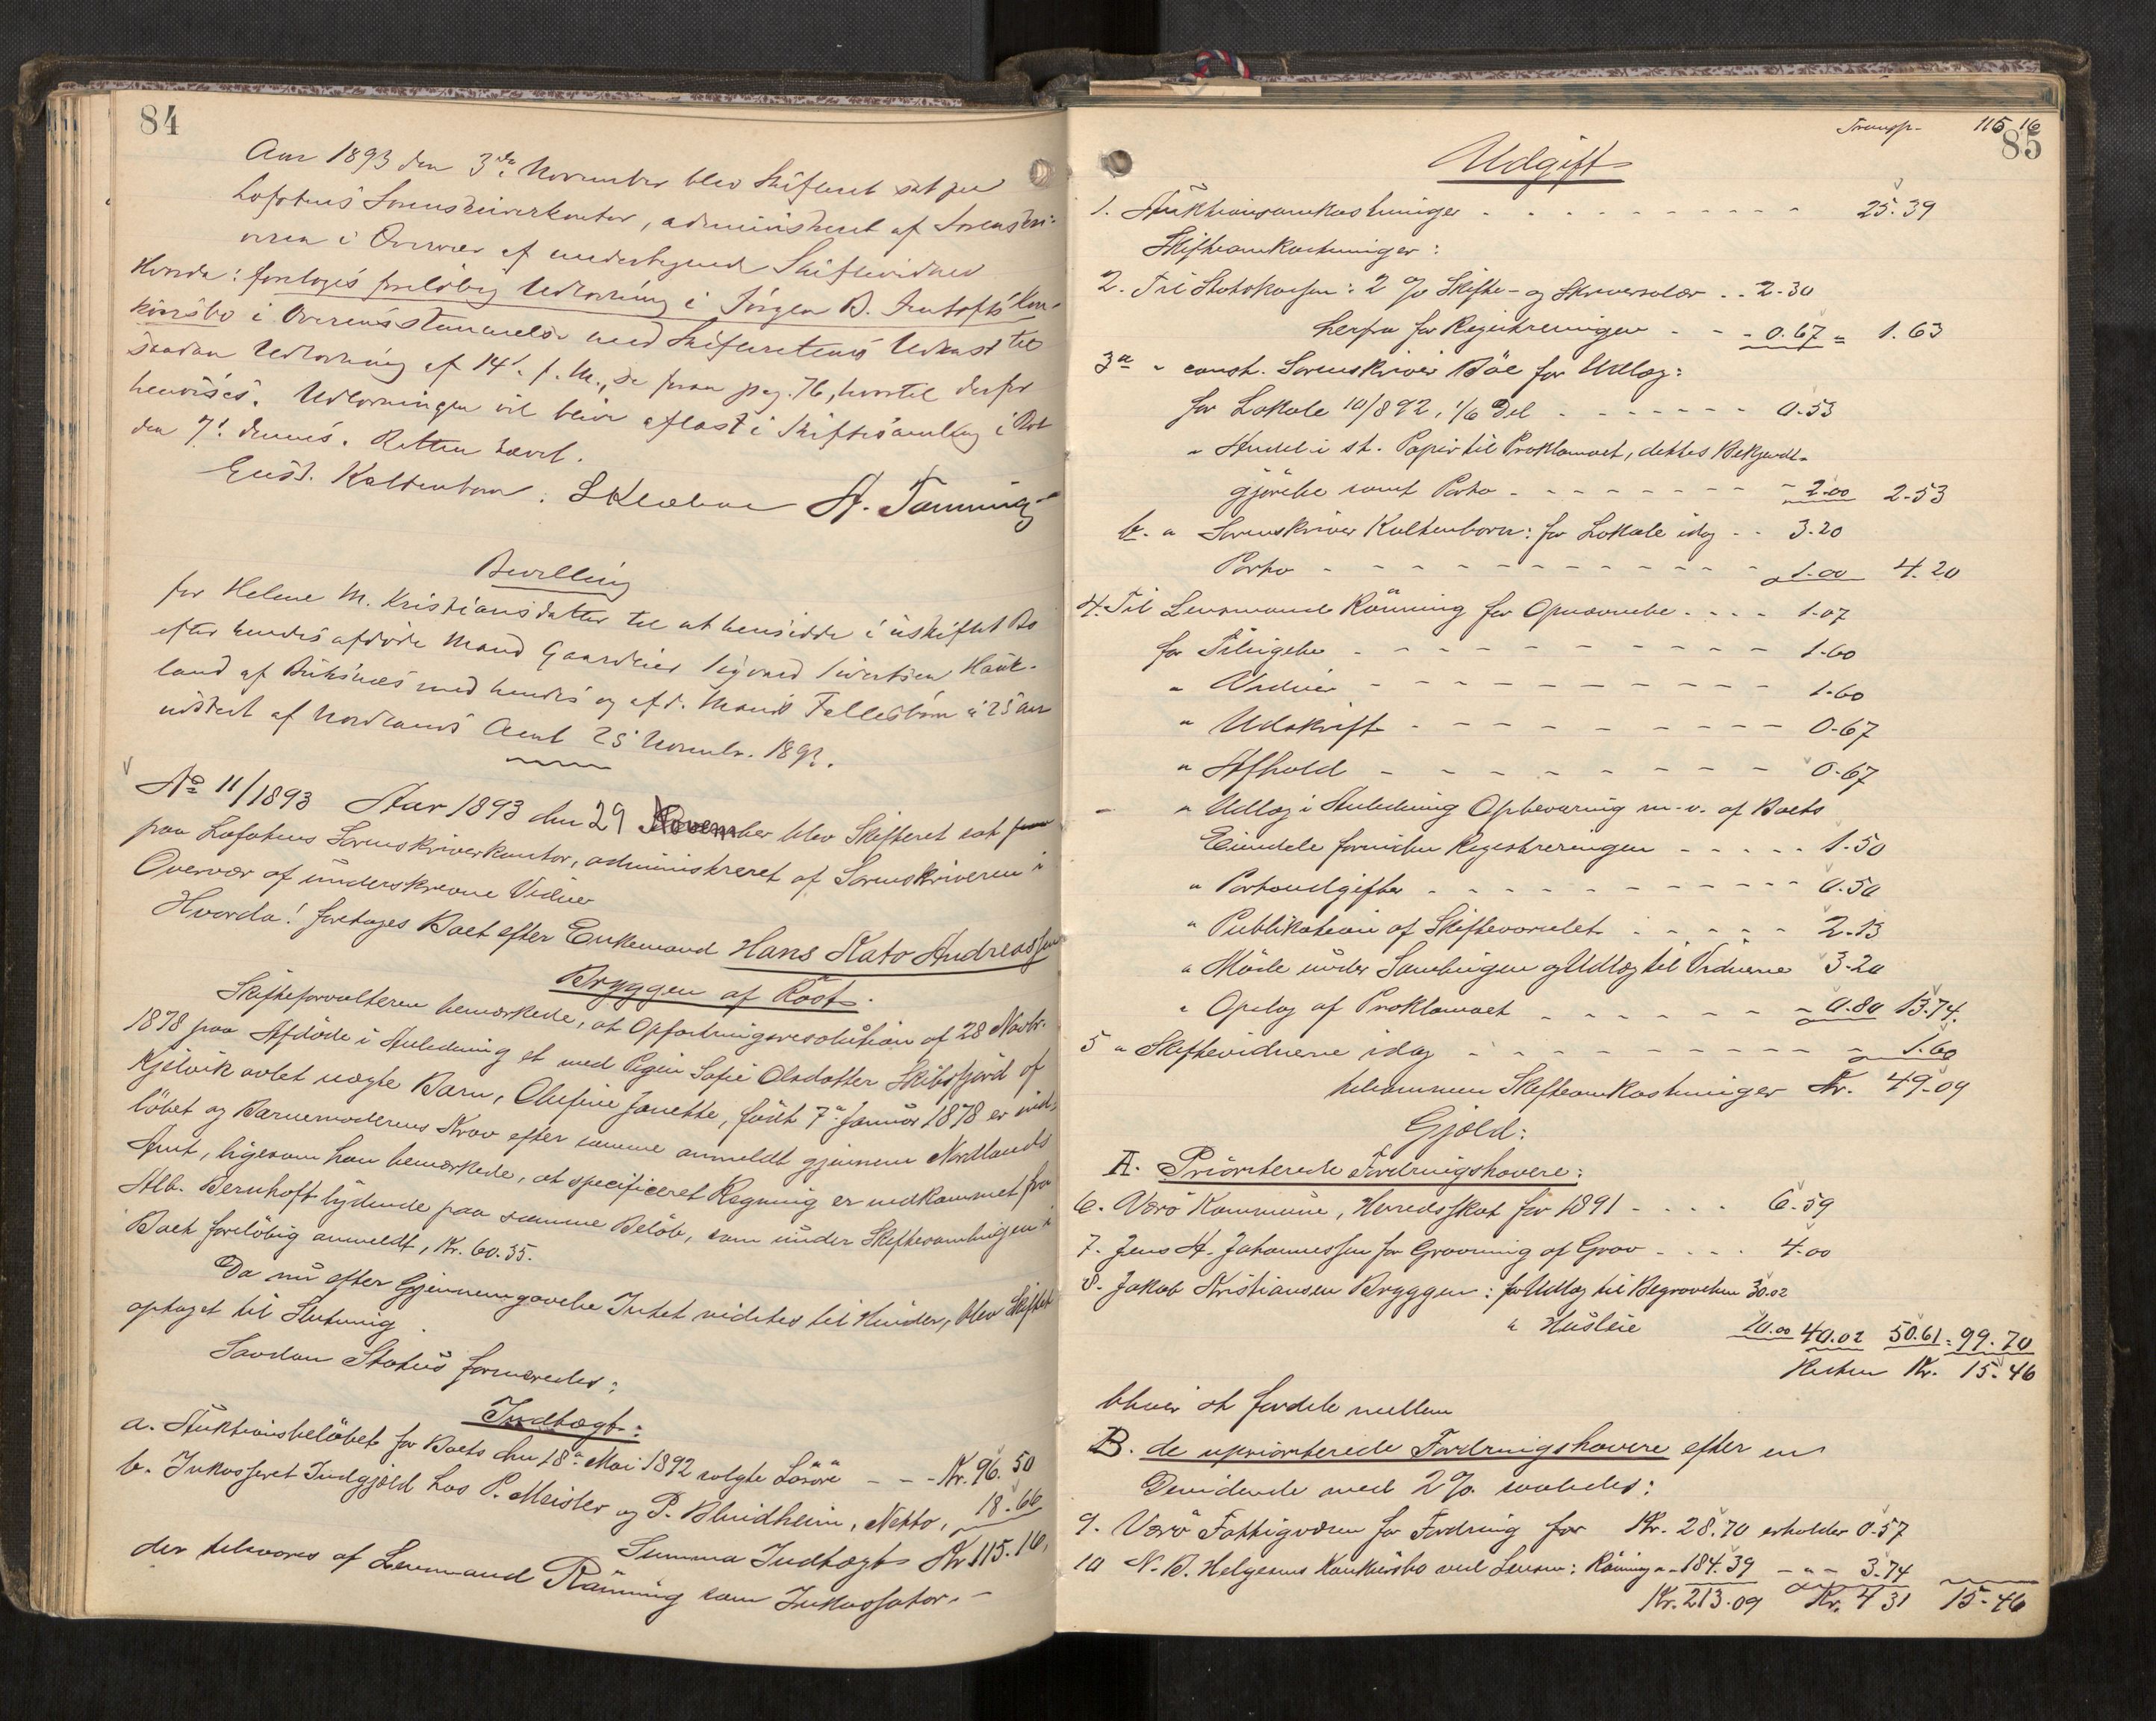 84
Aar 1893 den 3die November blev Skifteret sat paa
Lofotens Sorenskriverkontor, administreret af Sorenskri-
veren i Overvær af undertegnede Skiftevidner
Hvorda: foretoges foreløbig Udlodning i Jørgen B. Kon-
kursbo i Overensstemmelse med Skifterettens Udkast til
saadan Udlodning af 14. f. M., se foran pag. 76, hvortil derfor
henvises. Udlodningen vil blive aflæst i Skiftesamling i
den 7. dennes. Retten hævet.
Kaltenborn. A. Tønning
Bevilling
for Helene M. Kristiansdatter til at hensidde i uskiftet Bo
efter hendes afdøde Mand Gaardeier Sigvard Sivertsen Hauk-
land af Buksnes med hendes og afd. Mands Fællesbørn
udstedt af Nordlands Amt 25 Novembr. 1893.
No 11/1893 Aar 1893 den 29 November blev Skifteret sat
paa Lofotens Sorenskriverkontor, administreret af Sorenskriveren i
Overvær af underskrevne Vidner
Hvorda! foretages Boet efter Enkemand Hans Kato Andreassen
Bryggen af Røst.
Skifteforvalteren bemærkede, at Opfostringsresolution af 28 Novbr.
1878 paa Afdøde i Anledning et med Pigen Sofie Olsdatter Skibsfjord af
Kjelvik avlet uægte Barn, Olufine Janette, født 7de Januar 1878 er ind-
løbet og Barnemoderens Krav efter samme anmeldt gjennem Nordlands
Amt, ligesom han bemærkede, at specificeret Regning er indkommet fra
Alb. Bernhoft lydende paa samme Beløb, som under Skiftesamlingen i
Boet foreløbig anmeldt, Kr. 60.35.
Da nu efter Gjennemgaaelse Intet vidstes til Hinder, blev Skiftet
optaget til Slutning.
Saadan Status formeredes:
Indtægt:
a. Auktionsbeløbet for Boets den 18de Mai 1892 solgte Løsøre - - - Kr. 96.50
b. Inkasseret Indgjæld hos P. Meister og P. Blindheim, Netto, 18.66
Summa Indtægt Kr 115.16,
der tilsvares af Lensmand Rønning som Inkassator. -
Transp. 115 16
85
Udgift
1. Auktionsomkostninger - - - - - 25.39
Skifteomkostninger:
2. Til Statskassen: 2 % Skifte- og Skriversalær - - 2.30
herfra for Registreringen - - - 0.67 = 1.63
3a " const. Sorenskriver Bøe for Udlæg:
for Lokale 10/8 92, 1/6 Del - - - - 0.53
" Andel i st. Papir til Proklamaet, dettes Bekjendt-
gjørelse samt Porto - - - - - 2.00 2.53
b. " Sorenskriver Kaltenborn: for Lokale idag - - 3.20
Porto - - - - - 1.00 4.20
4. Til Lensmand Rønning for Opnævnelse - - - - 1.07
for Tilsigelse - - - - - 1.60
" Vidner - - - - - 1.60
" Udskrift - - - - - 0.67
" Afhold - - - - - 0.67
" Udlæg i Anledning Opbevaring m. v. af Boets
Eiendele forinden Registreringen - - - - - 1.50
" Portoudgifter - - - - - 0.50
" Publikation af Skiftevarselet - - - - - 2.13
" Møde under Samlingen og Udlæg til Vidnerne 3.20
" Opslag af Proklamaet - - - - - 0.80 13.74.
5 " Skiftevidnerne idag - - - - - 1.60
tilsammen Skifteomkostninger Kr. 49.09
Gjæld:
A. Prioriterede Fordringshavere:
6. Værø Kommune, Herredsskat for 1891 - - - - 6.59
7. Jens A. Johannessen for Gravning af Grav - - - - 4.00
8. Jakob Kristiansen Bryggen: for Udlæg til Begravelsen 30.02
" Husleie 10.00 40.02 50.61 = 99.70
Resten Kr. 15.46
bliver at fordele mellem
B. de uprioriterede Fordringshavere efter en
Dividende med 2% saaledes:
9. Værø Fattigvæsen for Fordring for Kr. 28.70 erholder 0.57
10 N. B. Helgesens Konkursbo ved Lensm: Rønning " - 184.39 - " - 3.74
Kr. 213.09 Kr. 4 31 15.46